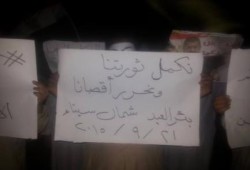 نكمل ثورتنا
ونحرر أقصانا
بئر العبد شمال سيناء
٢٠١٥ / ٩ / ٢١
#